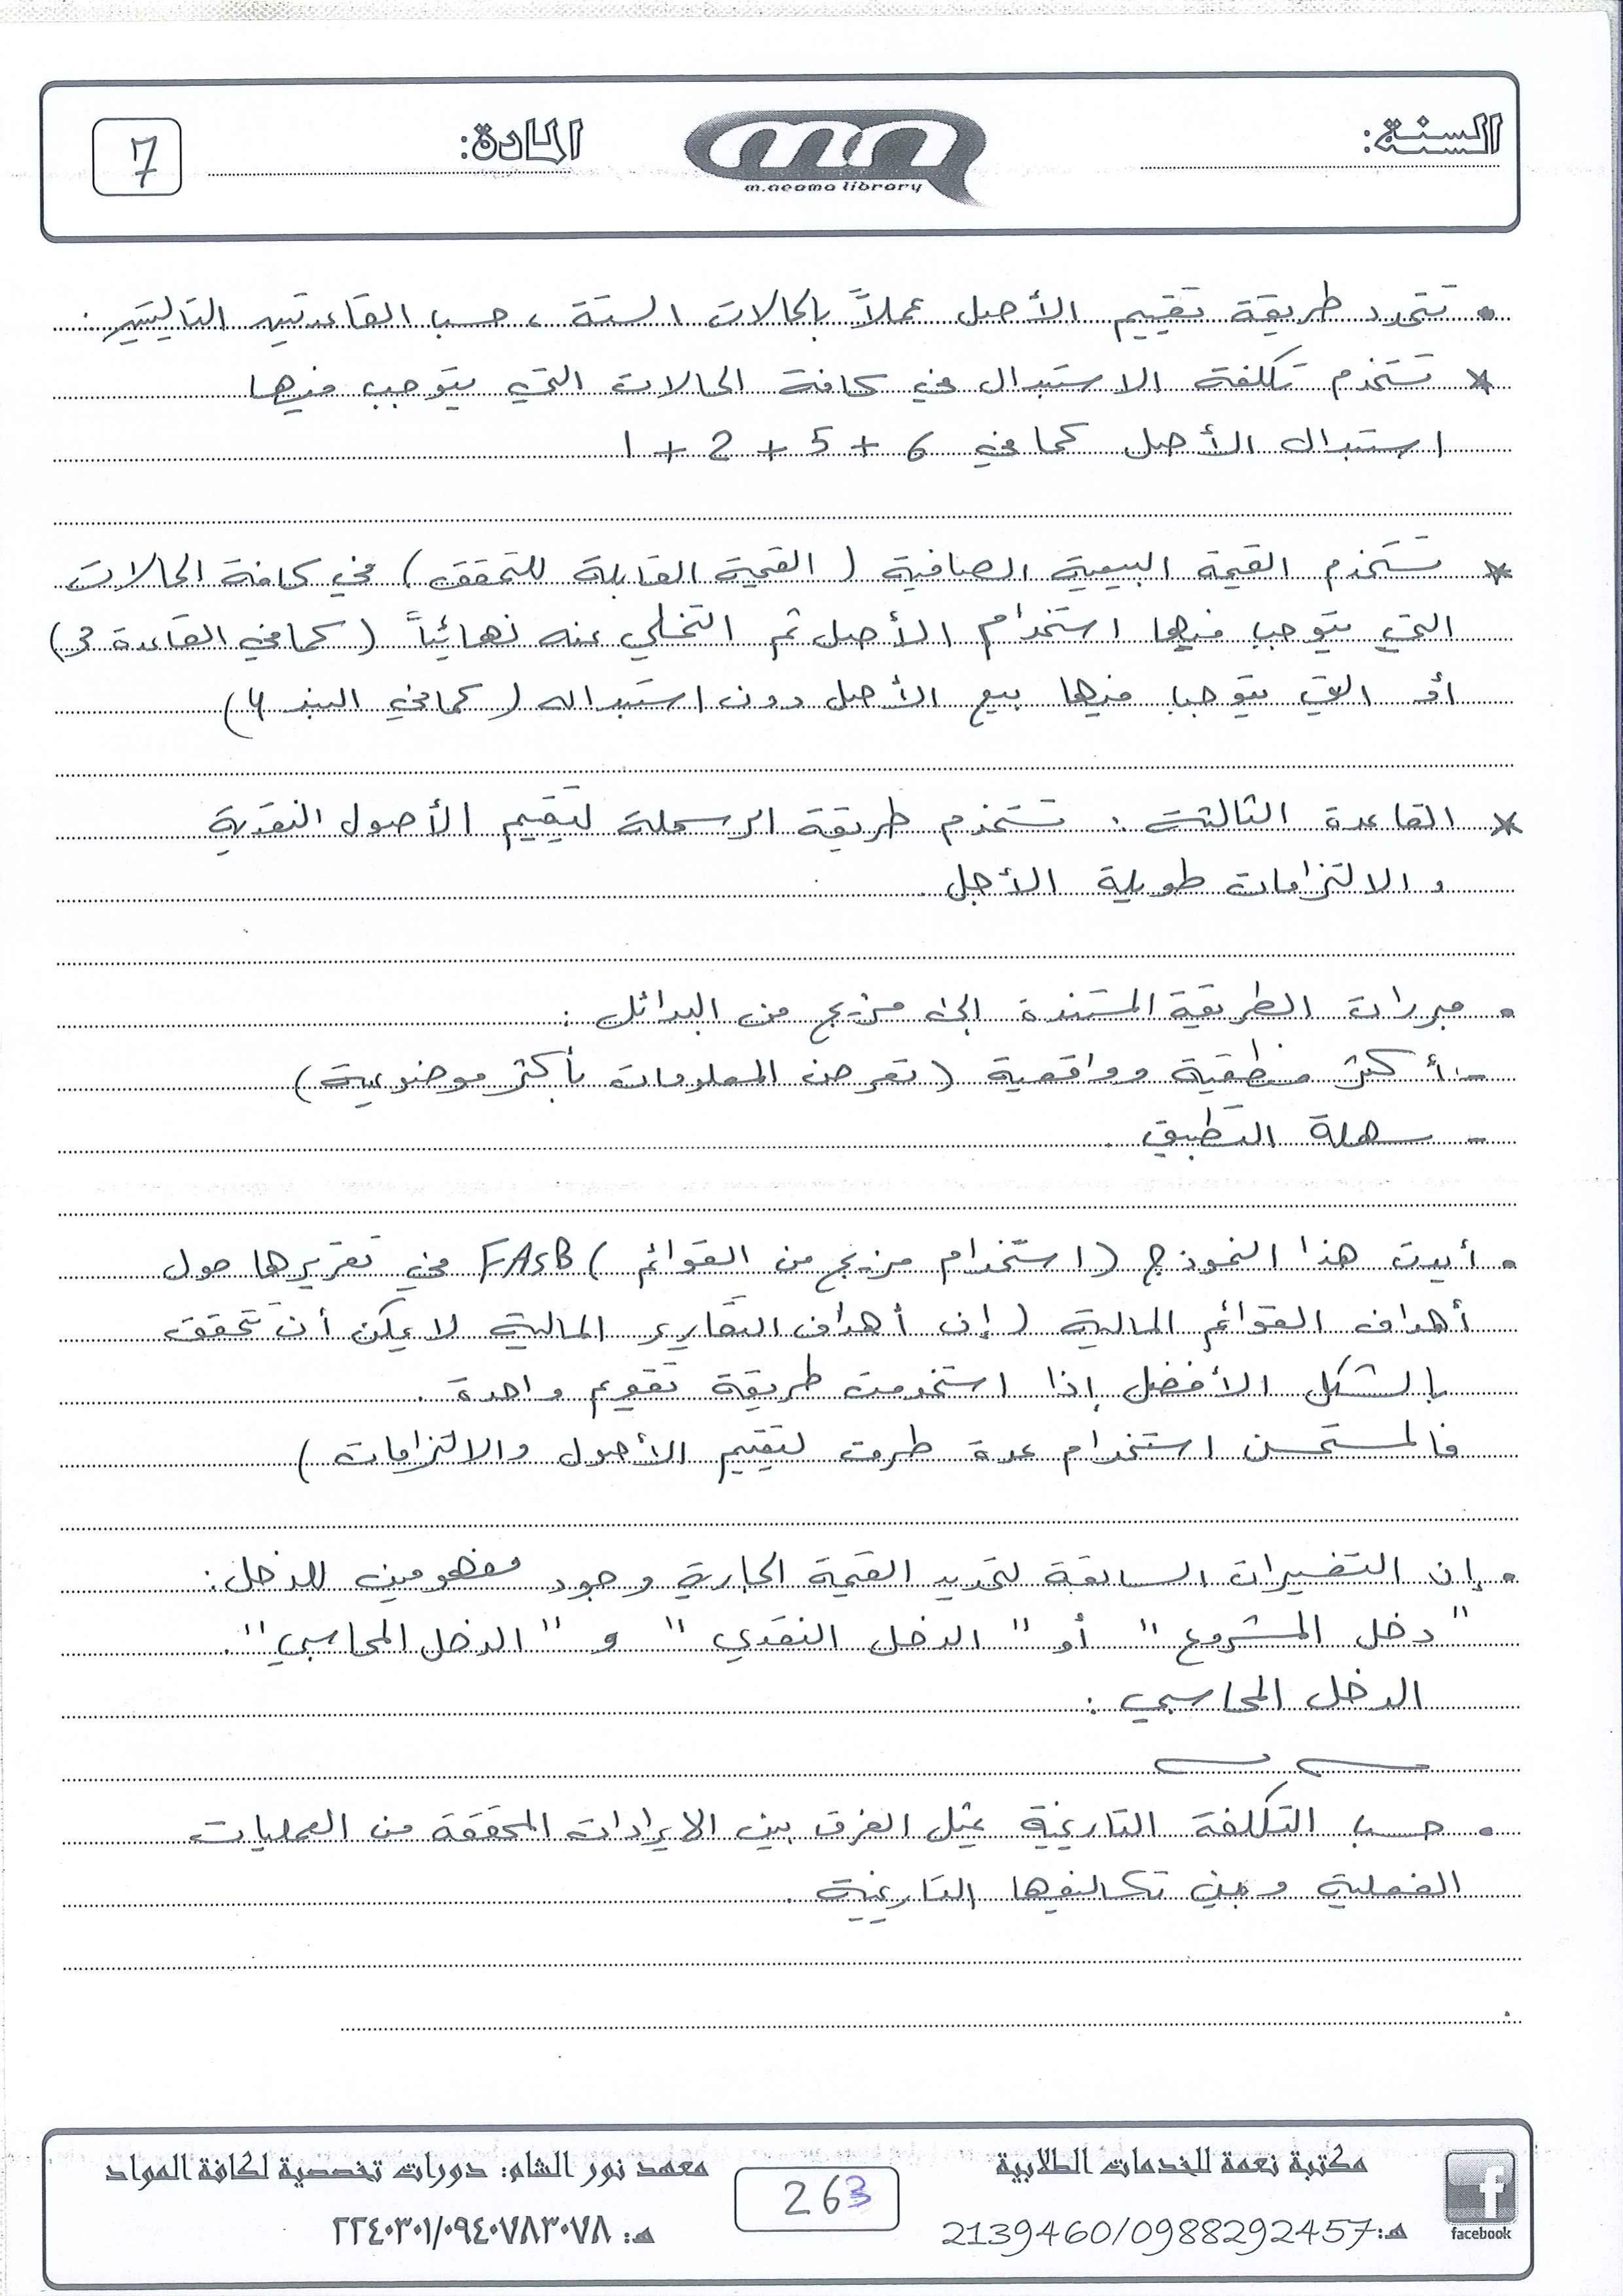 السنة:
m.neama library
المادة:
7
• تتحدد طريقة تقييم الأصل عملاً بالحالات الستة ، حسب القاعدتين التاليتين:
* تستخدم تكلفة الاستبدال في كافة الحالات التي يتوجب فيها
استبدال الأصل كما في 6 + 5 + 2 + 1
* تستخدم القيمة البيعية الصافية (القيمة القابلة للتحقق) في كافة الحالات
التي يتوجب فيها استخدام الأصل ثم التخلي عنه نهائياً (كما في القاعدة 3)
أو التي يتوجب فيها بيع الأصل دون استبداله (كما في البند 4)
* القاعدة الثالثة : تستخدم طريقة الرسملة لتقييم الأصول النقدية
والالتزامات طويلة الأجل.
• مبررات الطريقة المستندة إلى مزيج من البدائل :
- أكثر منطقية وواقعية (تعرض المعلومات بأكثر موضوعية)
- سهلة التطبيق.
• أيدت هذا النموذج (استخدام مزيج من القوائم) FASB في تقريرها حول
أهداف القوائم المالية (إن أهداف التقارير المالية لا يمكن أن تتحقق
بالشكل الأفضل إذا استخدمت طريقة تقويم واحدة .
فالمستحسن استخدام عدة طرق لتقييم الأصول والالتزامات)
• إن التفسيرات السابقة لتحديد القيمة الجارية وجود مفهومين للدخل:
"دخل المشروع" أو "الدخل النقدي" و "الدخل المحاسبي".
الدخل المحاسبي :
• حسب التكلفة التاريخية يمثل الفرق بين الإيرادات المحققة من العمليات
الفعلية وبين تكاليفها التاريخية .
مكتبة نعمة للخدمات الطلابية
هـ:2139460/0988292457
facebook
263
معهد نور الشام: دورات تخصصية لكافة المواد
هـ: ٢٢٤٠٣٠١/٠٩٤٠٧٨٣٠٧٨